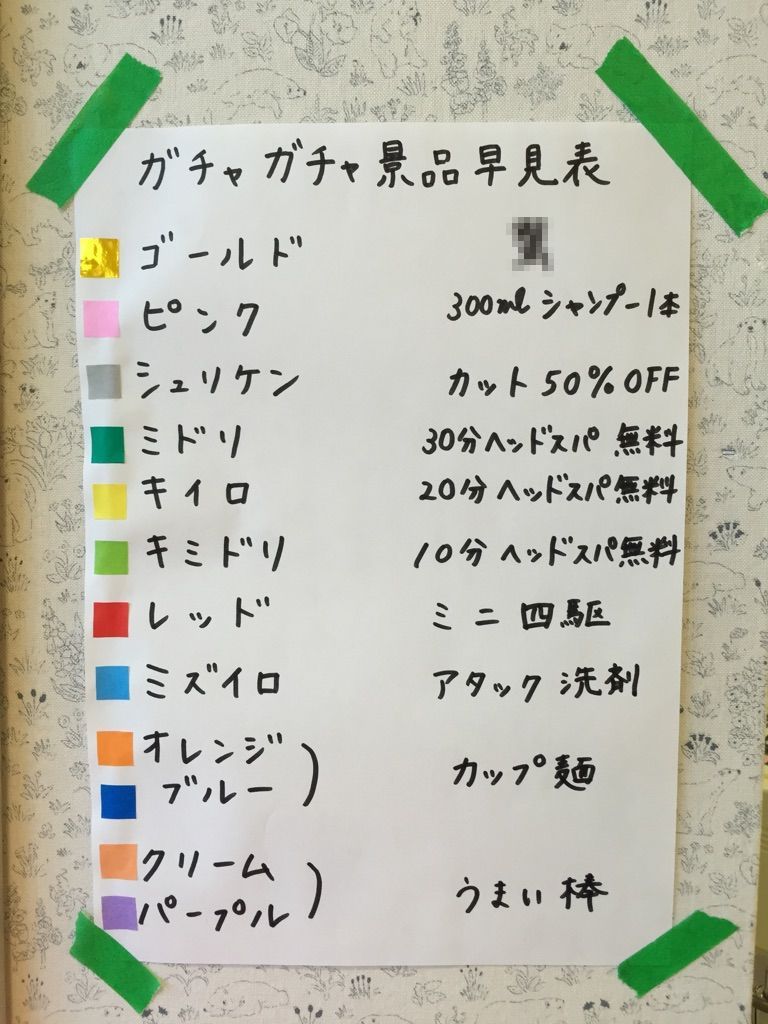 ガチャガチャ景品早見表
ゴールド
ピンク 300ml シャンプー1本
シュリケン カット 50%OFF
ミドリ 30分ヘッドスパ 無料
キイロ 20分ヘッドスパ無料
キミドリ 10分ヘッドスパ無料
レッド ミニ四駆
ミズイロ アタック洗剤
オレンジ
ブルー) カップ麺
クリーム
パープル) うまい棒